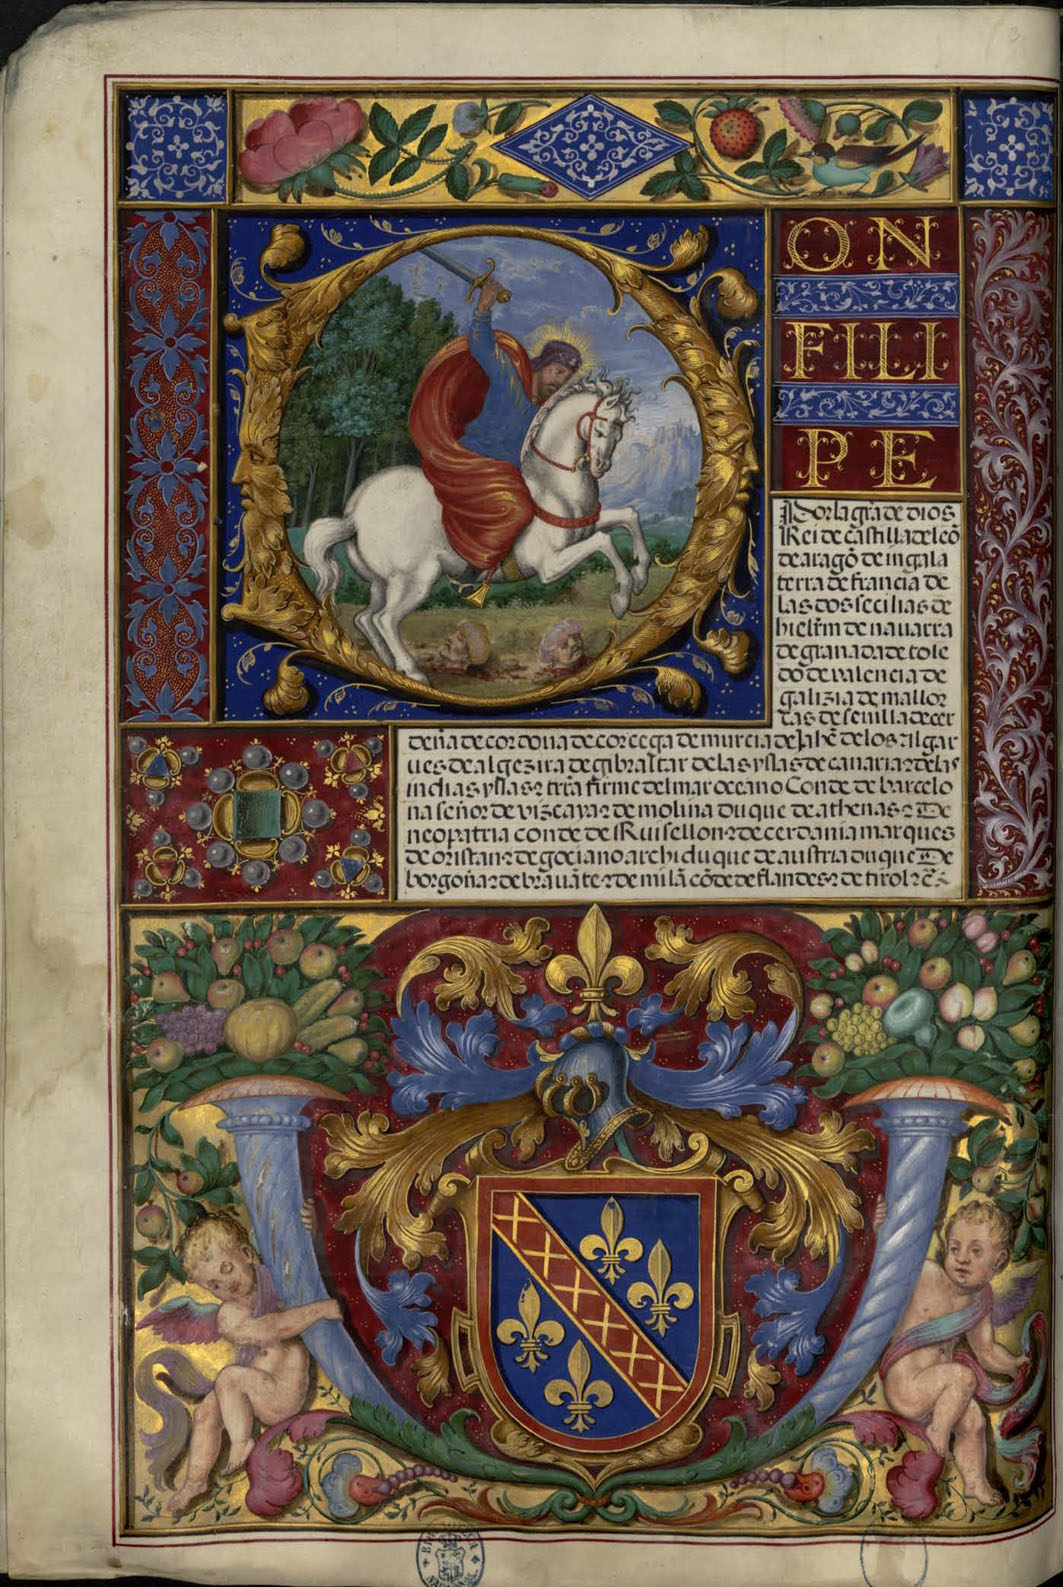 ON
FILI
PE
Por la gr̃a de dios
Rei de castilla de leõ
de aragõ de ingala
terra de francia de
las dos secilias de
hierl̃m de nauarra
de granada de tole
do de valencia de
galizia de mallor
cas de seuilla de cer
deña de cordoua de corcega de murcia de Jahẽ de los Algar
ues de algezira de gibraltar de las yslas de canaria ⁊ de las
indias yslas ⁊ trr̃a firme del mar oceano Conde de barcelo
na señor de vizcaya ⁊ de molina duque de athenas ⁊ De
neopatria conde de Ruisellon ⁊ de cerdania marques
de oristan ⁊ de gociano archiduque de austria duque De
borgoña ⁊ de brauãte ⁊ de milã cõde de flandes ⁊ de tirol ⁊ c̃